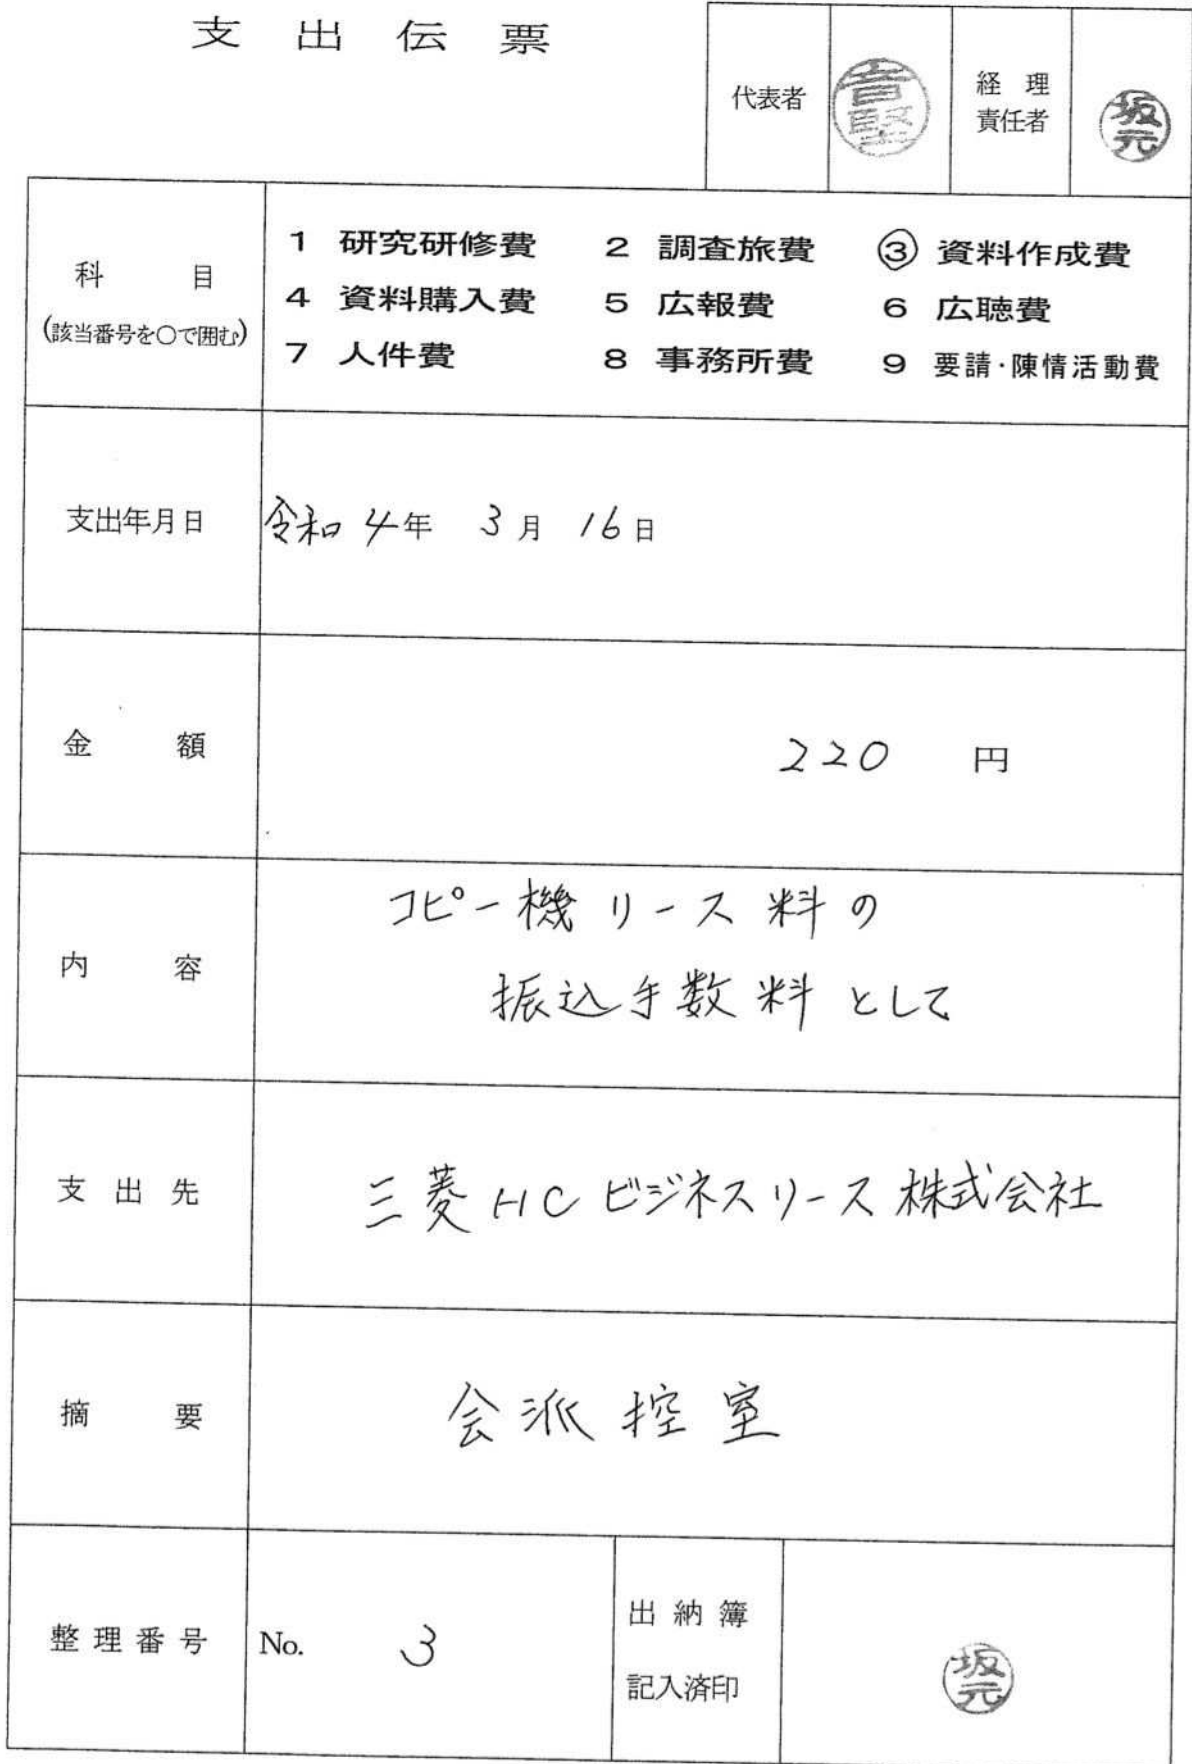 支出伝票
代表者
経理
責任者
坂元
科目
(該当番号を○で囲む)
1 研究研修費 2 調査旅費 ③ 資料作成費
4 資料購入費 5 広報費 6 広聴費
7 人件費 8 事務所費 9 要請・陳情活動費
支出年月日 令和4年 3月 16日
金額 220 円
内容
コピー機リース料の
振込手数料として
支出先 三菱HCビジネスリース株式会社
摘要 会派控室
整理番号 No. 3
出納簿
記入済印
坂元